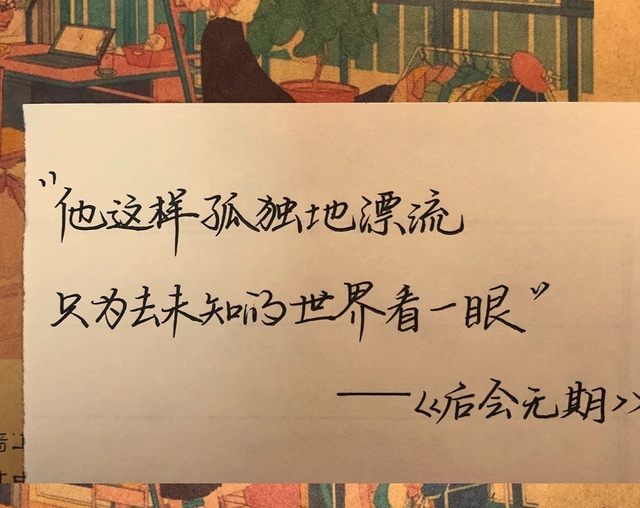 “他这样孤独地漂流
只为去未知的世界看一眼”
——《后会无期》